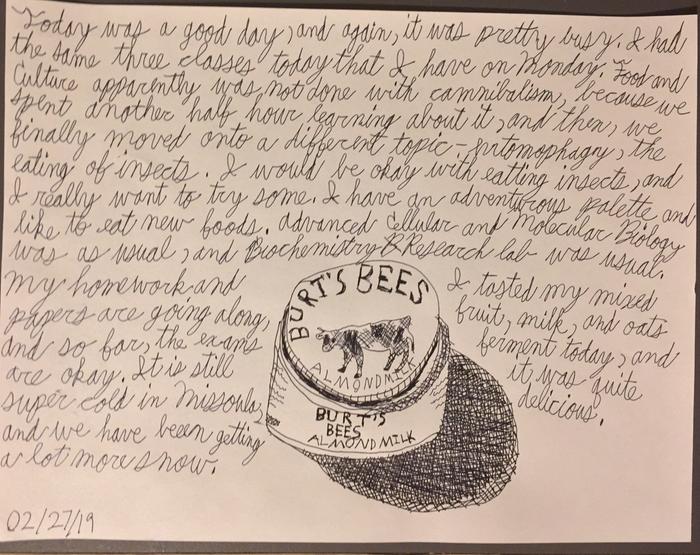 Today was a good day, and again, it was pretty busy. I had
the same three classes today that I have on Monday. Food and
Culture apparently was not done with cannibalism, because we
spent another half hour learning about it, and then, we
finally moved onto a different topic - Entomophagy, the
eating of insects. I would be okay with eating insects, and
I really want to try some. I have an adventurous palette and
like to eat new foods. Advanced Cellular and Molecular Biology
was as usual, and Biochemistry Research lab was usual.
My homework and
papers are going along,
and so far, the exams
are okay. It is still
super cold in Missoula,
and we have been getting
a lot more snow.
BURT'S BEES
ALMOND MILK
BURT'S
BEES
ALMOND MILK
I tasted my mixed
fruit, milk, and oats
ferment today, and
it was quite
delicious.
02/27/19